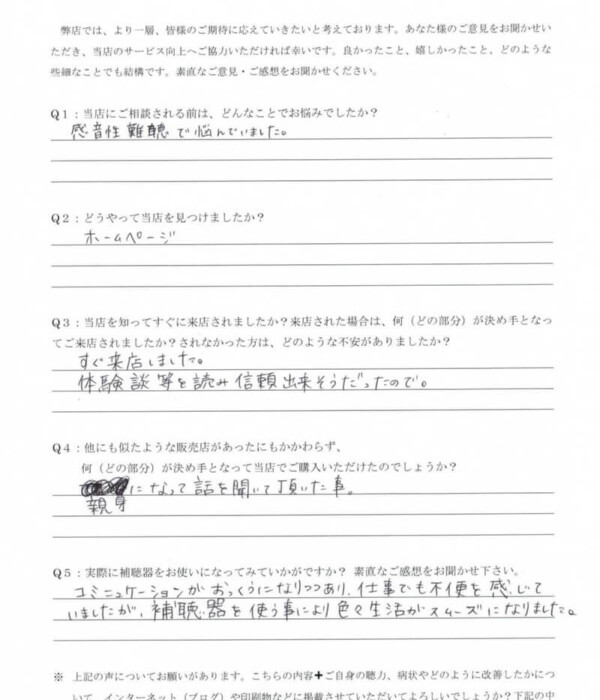 弊店では、より一層、皆様のご期待に応えていきたいと考えております。あなた様のご意見をお聞かせい
ただき、当店のサービス向上へご協力いただければ幸いです。良かったこと、嬉しかったこと、どのような
些細なことでも結構です。素直なご意見・ご感想をお聞かせください。
Q1：当店にご相談される前は、どんなことでお悩みでしたか？
感音性難聴で悩んでいました。
Q2：どうやって当店を見つけましたか？
ホームページ
Q3：当店を知ってすぐに来店されましたか？来店された場合は、何（どの部分）が決め手となっ
てご来店されましたか？されなかった方は、どのような不安がありましたか？
すぐ来店しました。
体験談等を読み信頼出来そうだったので。
Q4：他にも似たような販売店があったにもかかわらず、
何（どの部分）が決め手となって当店でご購入いただけたのでしょうか？
親身になって話を聞いて頂いた事。
Q5：実際に補聴器をお使いになってみていかがですか？ 素直なご感想をお聞かせ下さい。
コミニュケーションがおっくうになりつつあり、仕事でも不便を感じて
いましたが、補聴器を使う事により色々生活がスムーズになりました。
※ 上記の声についてお願いがあります。こちらの内容＋ご自身の聴力、病状やどのように改善したかにつ
いて、インターネット（ブログ）や印刷物などに掲載させていただいてよろしいでしょうか？下記の中